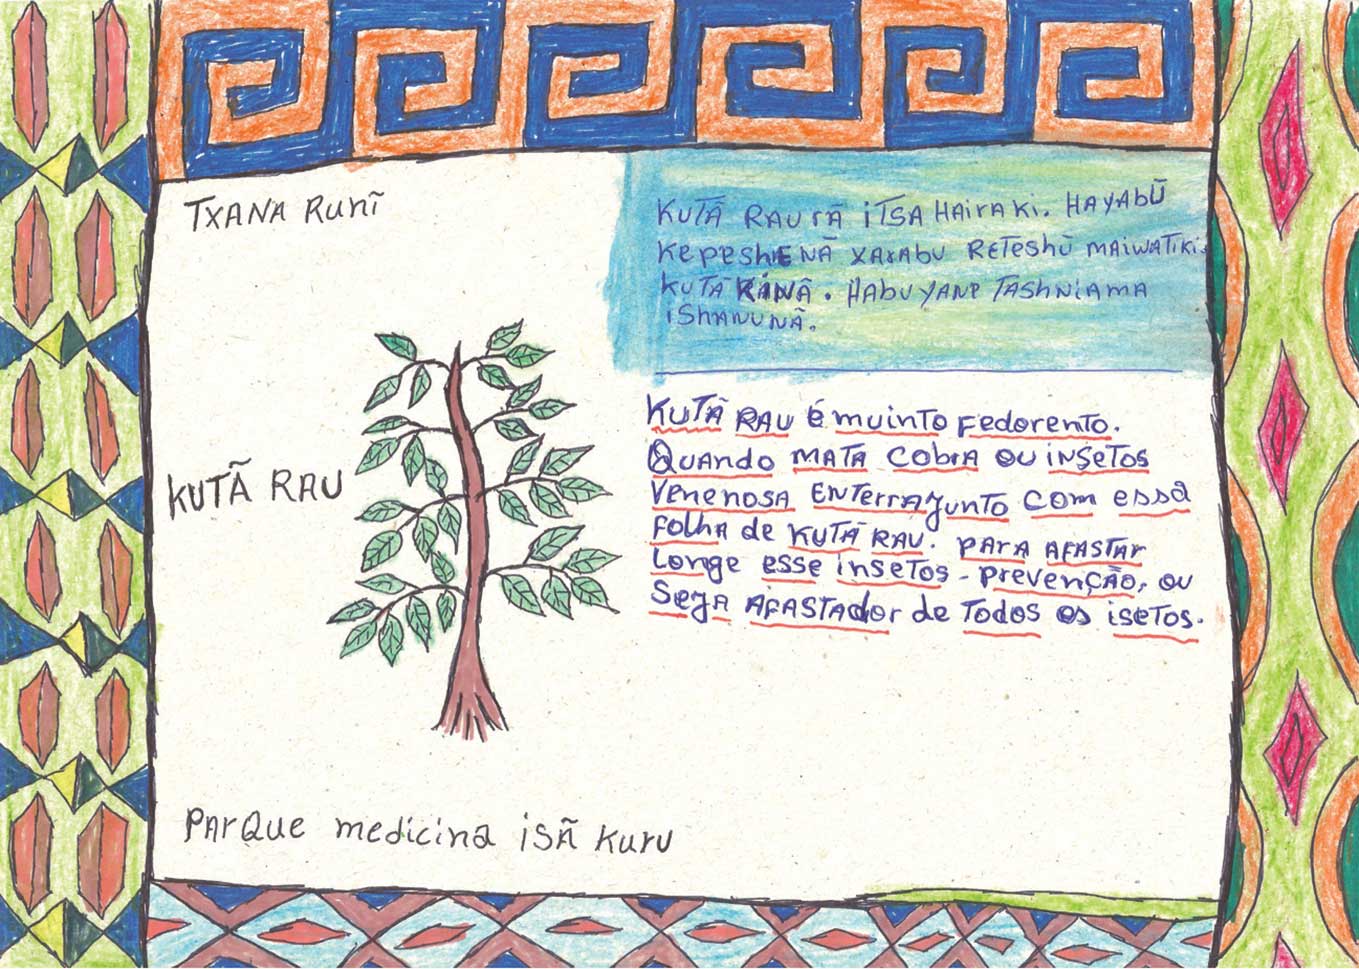 TXANA Runĩ
KUTÃ RAU rã iTSA HAiraKi. HAYAbŪ
KepeshENÃ XAXAbu ReTeshŪ MAiWATiKis
KUTÃ KAINÃ. HAbuYANP TASHNiAMA
iSHANUNÃ.
KUTÃ RAU
KUTÃ RAU é muinTo Fedorento.
QUANdo MATA CObrA OU iNSeTOS
VeNeNOSA ENTerrA JUNTO COM essa
FOLHA de KUTÃ RAU. PArA AFASTAr
Longe esse iNSeTOS - PreveNÇÃO, OU
SeJA AFASTAdor de TODOS OS iseTOS.
PArQue medicina iSÃ Kuru